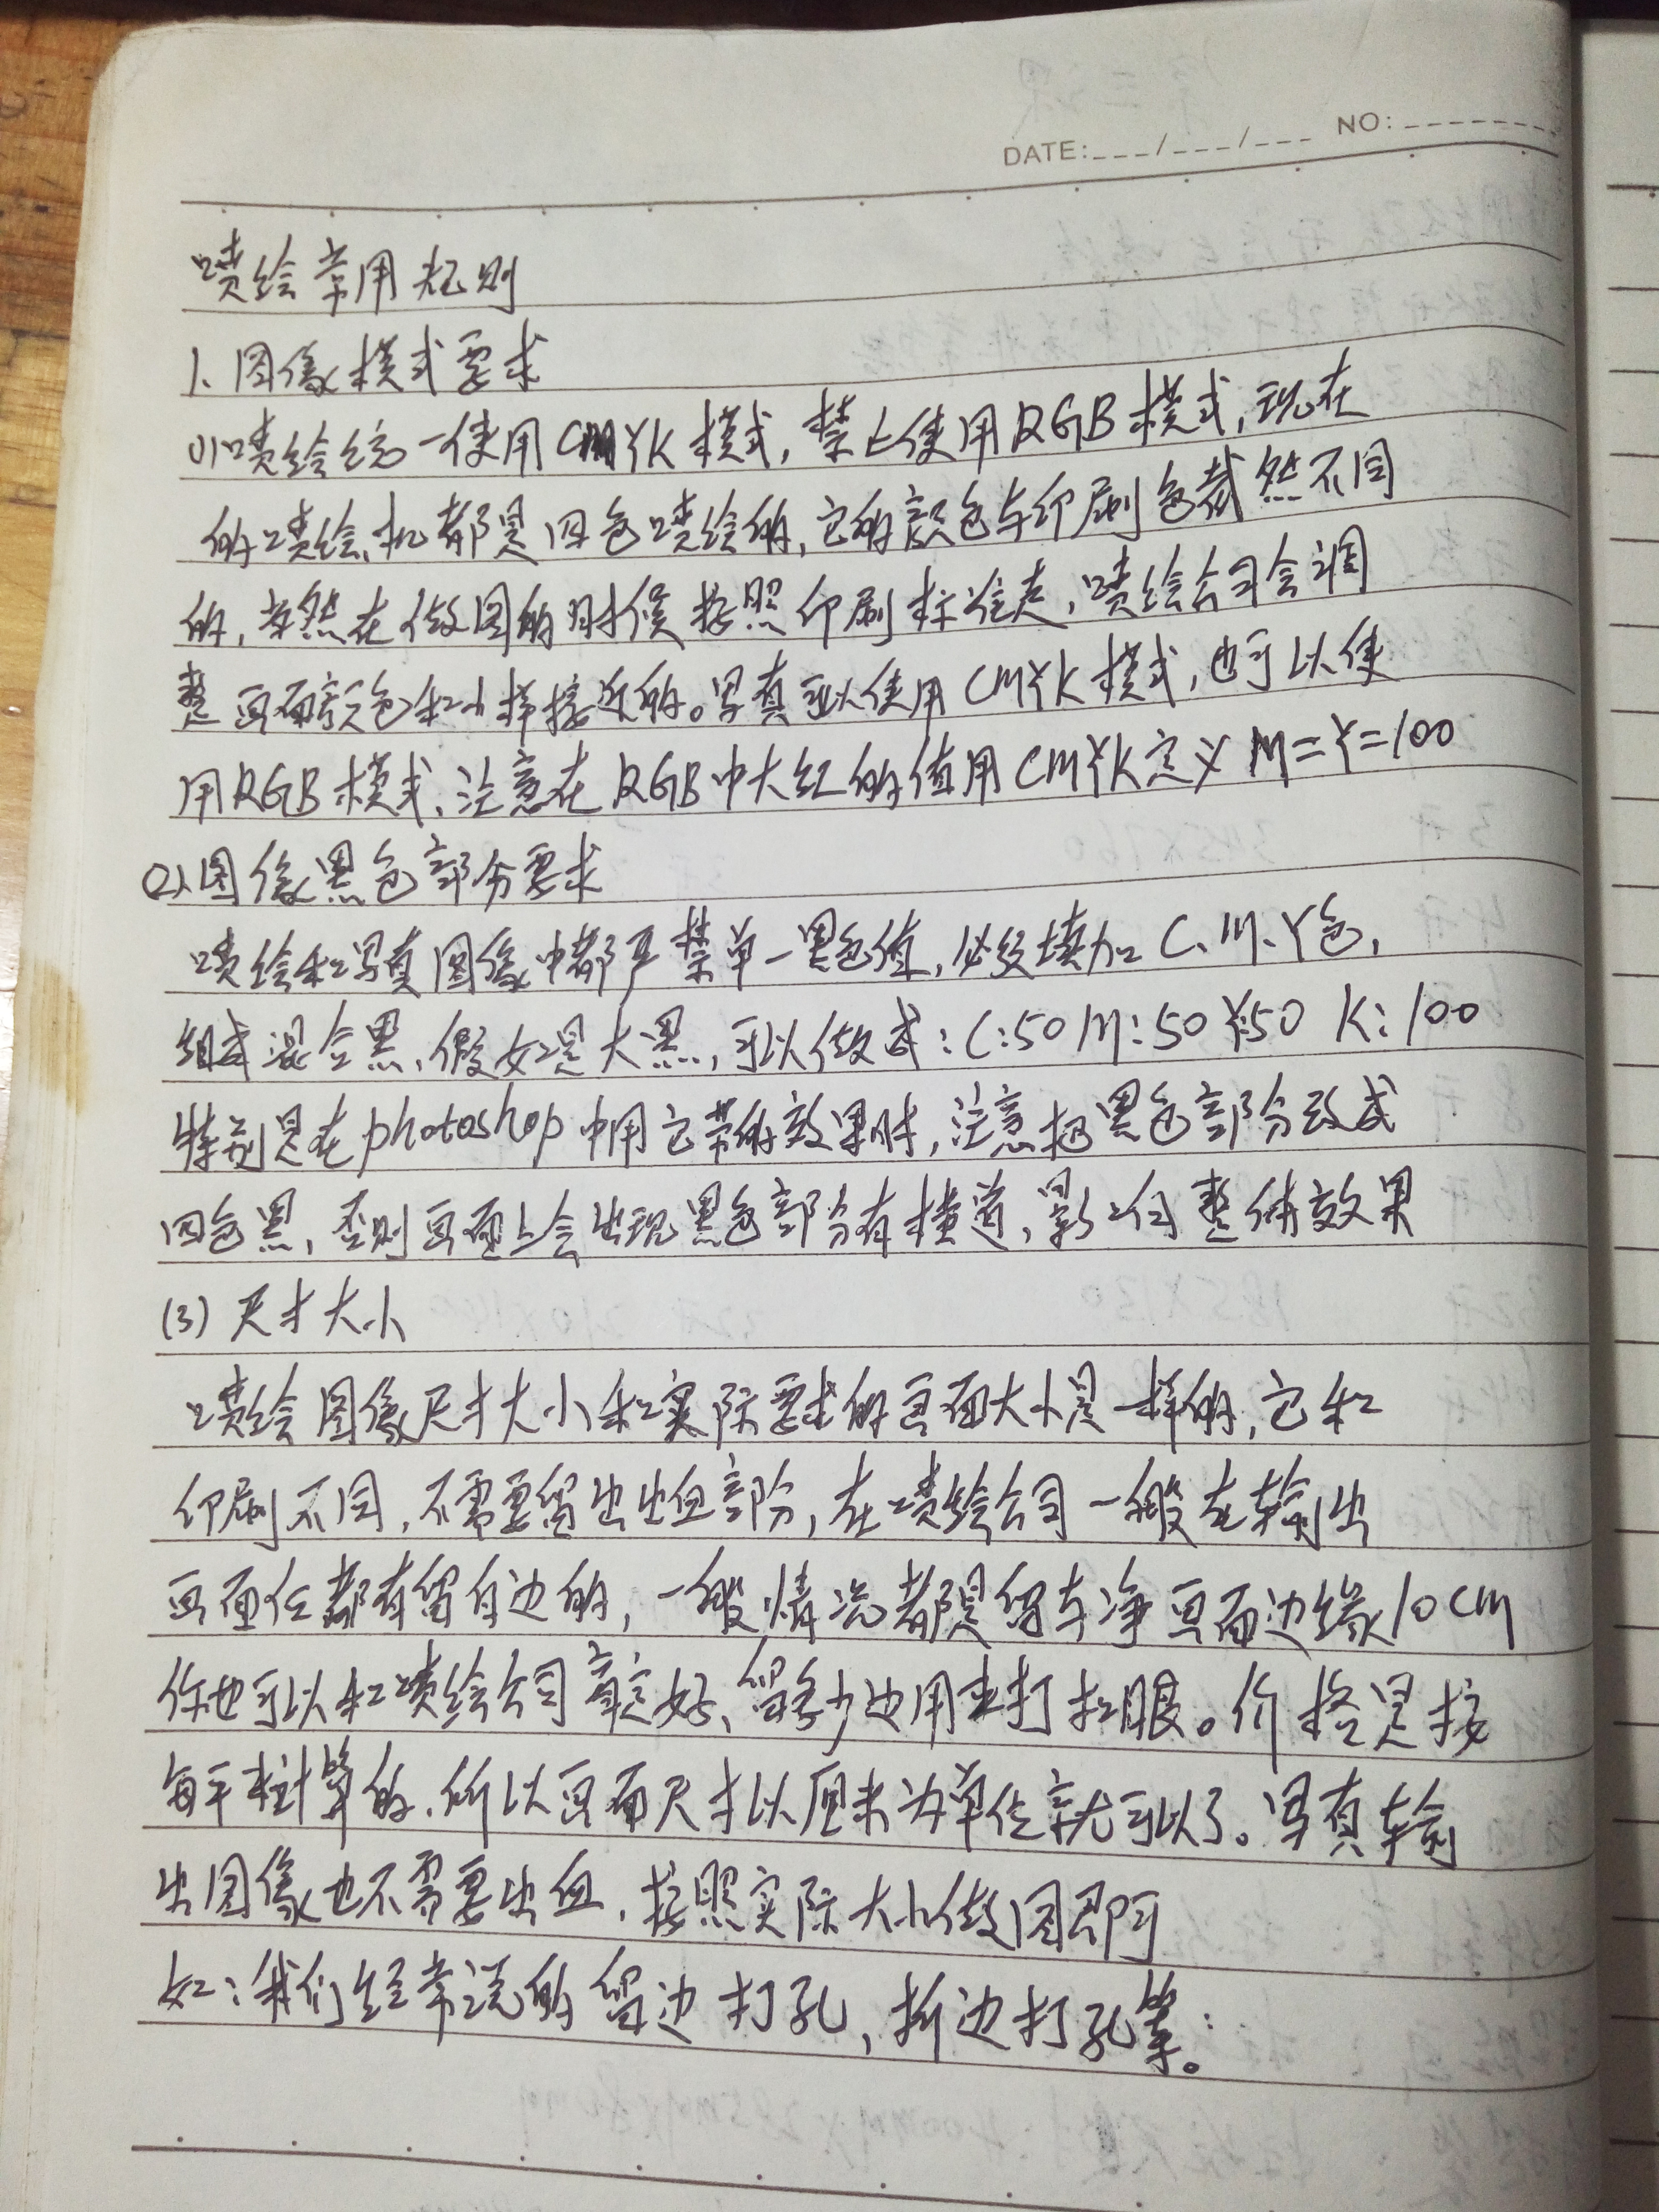 DATE:___/___/___ NO:________
喷绘常用规则
1、图像模式要求
(1)喷绘统一使用CMYK模式，禁止使用RGB模式，现在
的喷绘机都是四色喷绘的，它的颜色与印刷色截然不同
的，当然在做图的时候按照印刷标准走，喷绘公司会调
整画面颜色和小样接近的。写真可以使用CMYK模式，也可以使
用RGB模式，注意在RGB中大红的值用CMYK定义M=Y=100
(2)图像黑色部分要求
喷绘和写真图像中都严禁单一黑色值，必须填加C、M、Y色，
组成混合黑，假如是大黑，可以做成：C:50 M:50 Y:50 K:100
特别是在photoshop中用它带的效果时，注意把黑色部分改成
四色黑，否则画面上会出现黑色部分有横道，影响整体效果
(3)尺寸大小
喷绘图像尺寸大小和实际要求的画面大小是一样的，它和
印刷不同，不需要留出出血部分，在喷绘公司一般在输出
画面任都有留白边的，一般情况都是留与净画面边缘10CM
你也可以和喷绘公司商定好、留多少边用来打扣眼。价格是按
每平米计算的，所以画面尺寸以厘米为单位就可以了。写真输
出图像也不需要出血，按照实际大小做图即可
如：我们经常说的留边打孔，折边打孔等。